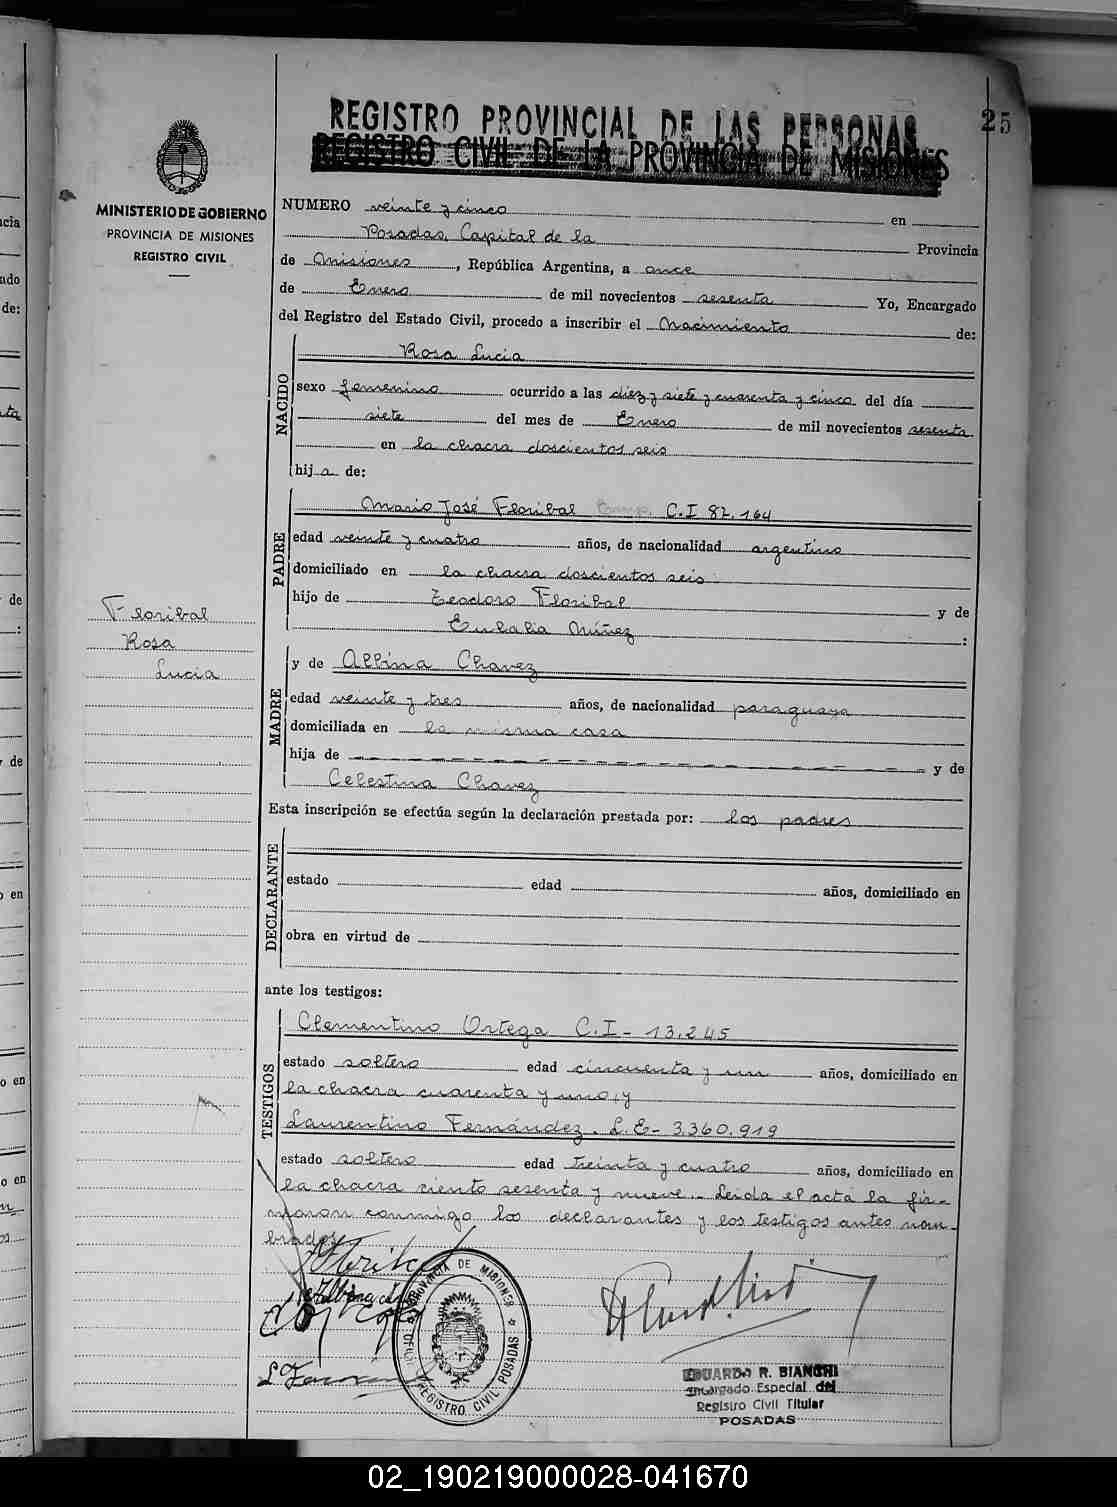 REGISTRO PROVINCIAL DE LAS PERSONAS
REGISTRO CIVIL DE LA PROVINCIA DE MISIONES
25
MINISTERIO DE GOBIERNO
PROVINCIA DE MISIONES
REGISTRO CIVIL
NUMERO veinte y cinco en
Posadas, Capital de la Provincia
de Misiones, República Argentina, a once
de Enero de mil novecientos sesenta Yo, Encargado
del Registro del Estado Civil, procedo a inscribir el Nacimiento de:
NACIDO
Rosa Lucia
sexo femenino ocurrido a las diez y siete y cuarenta y cinco del día
siete del mes de Enero de mil novecientos sesenta
en la chacra doscientos seis
hija de:
PADRE
Mario José Floribal C.I 82.164
edad veinte y cuatro años, de nacionalidad argentino
domiciliado en la chacra doscientos seis
hijo de Teodoro Floribal y de
Eulalia Núñez :
Floribal
Rosa
Lucia
MADRE
y de Albina Chavez
edad veinte y tres años, de nacionalidad paraguaya
domiciliada en la misma casa
hija de y de
Celestina Chavez
Esta inscripción se efectúa según la declaración prestada por: los padres
DECLARANTE
estado edad años, domiciliado en
obra en virtud de
ante los testigos:
TESTIGOS
Clementino Ortega C.I - 13.245
estado soltero edad cincuenta y un años, domiciliado en
la chacra cuarenta y uno, y
Laurentino Fernandez. L.E- 3.360.919
estado soltero edad treinta y cuatro años, domiciliado en
la chacra ciento sesenta y nueve.- Leída el acta la fir-
maron conmigo los declarantes y los testigos antes nom-
brados
PROVINCIA DE MISIONES
REGISTRO CIVIL POSADAS
EDUARDO R. BIANCHI
Encargado Especial del
Registro Civil Titular
POSADAS
02_190219000028-041670